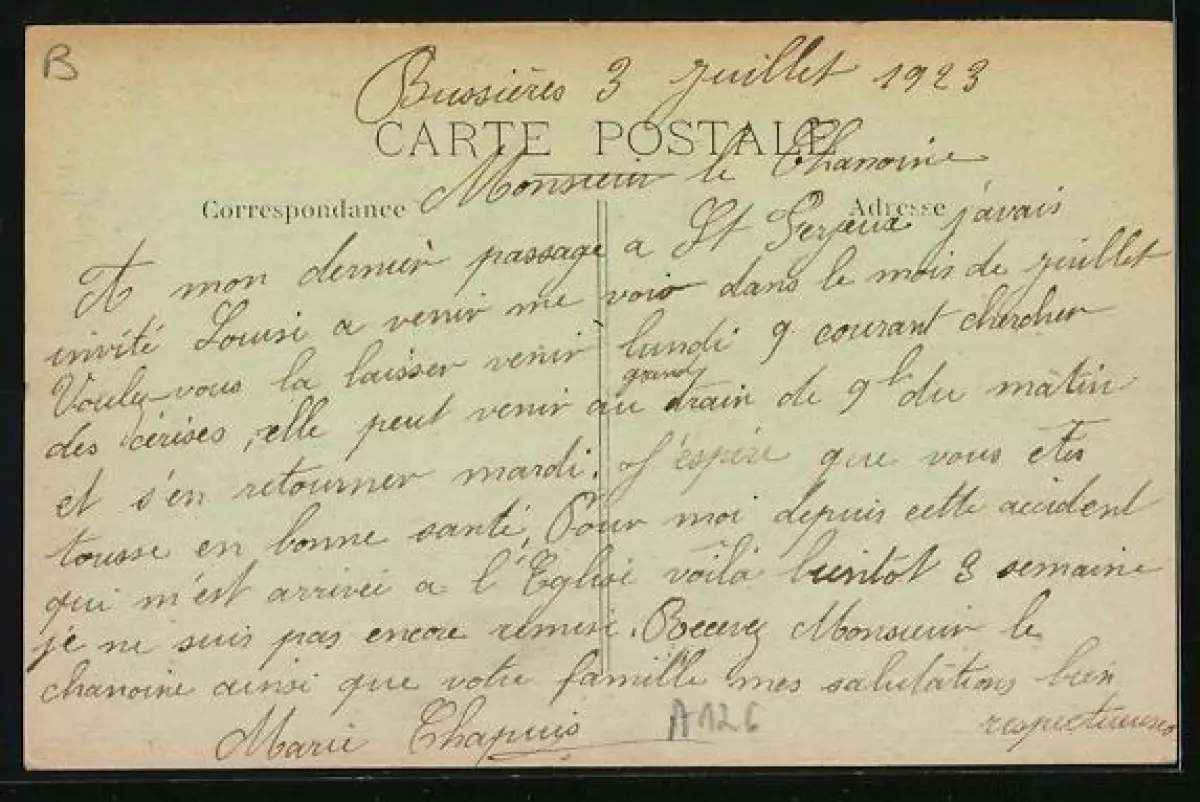 B
Bussières 3 Juillet 1923
CARTE POSTALE
Monsieur le Chanoine
Correspondance
Adresse
A mon dernier passage a St Gerjeux j'avais
invité Louise a venir me voir dans le mois de juillet
Voulez-vous la laisser venir lundi 9 courant chercher
des cérises, elle peut venir au grand train de 9h du matin
et s'en retourner mardi. J'espère que vous êtes
tousse en bonne santé, Pour moi depuis cette accident
qui m'est arrivée a l'Eglise voilà bientot 3 semaine
je ne suis pas encore remise. Recevez Monsieur le
chanoine ainsi que votre famille mes salutations bien
respectueuses
Marie Chapuis
A126